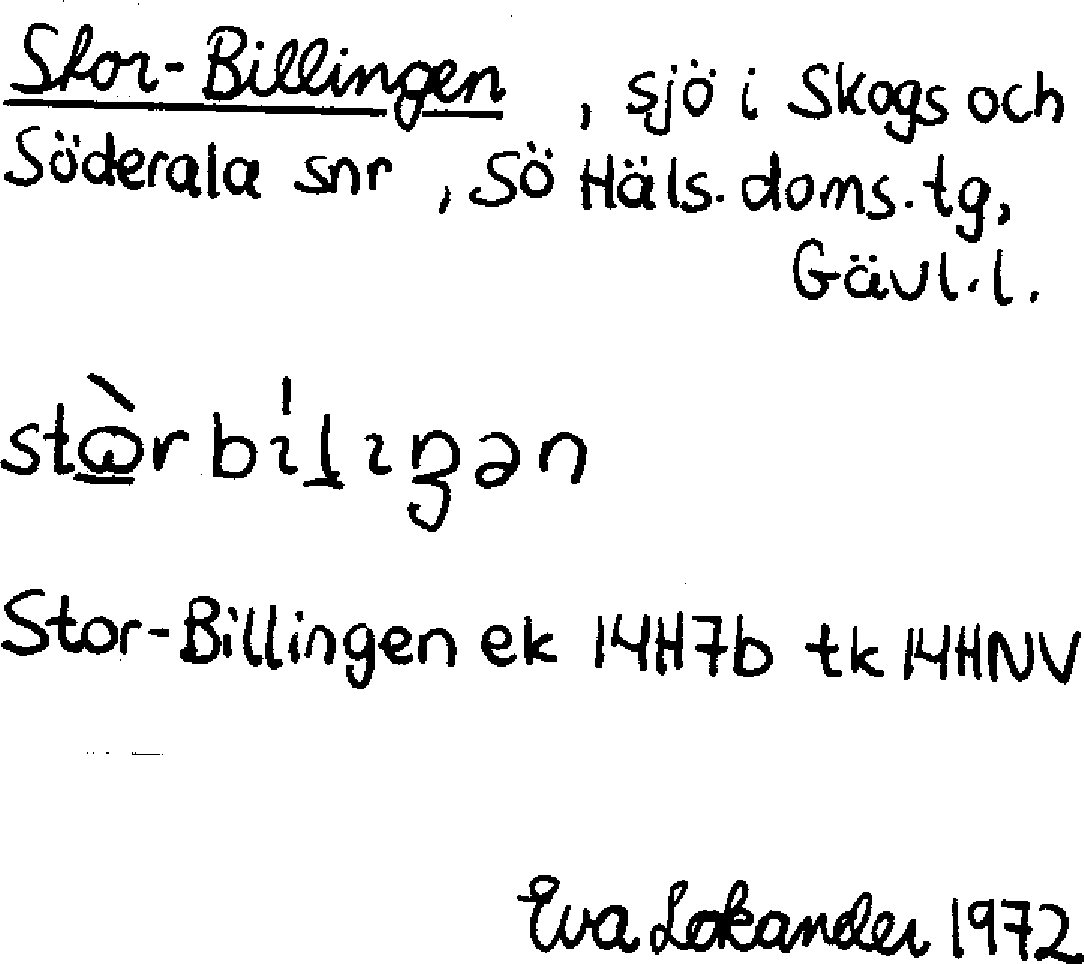 Stor-Billingen, sjö i Skogs och
Söderala snr, Sö Häls. doms. tg,
Gävl. l.
Stor-Billingen ek 14H7b tk 14HNV
Eva Lokander 1972